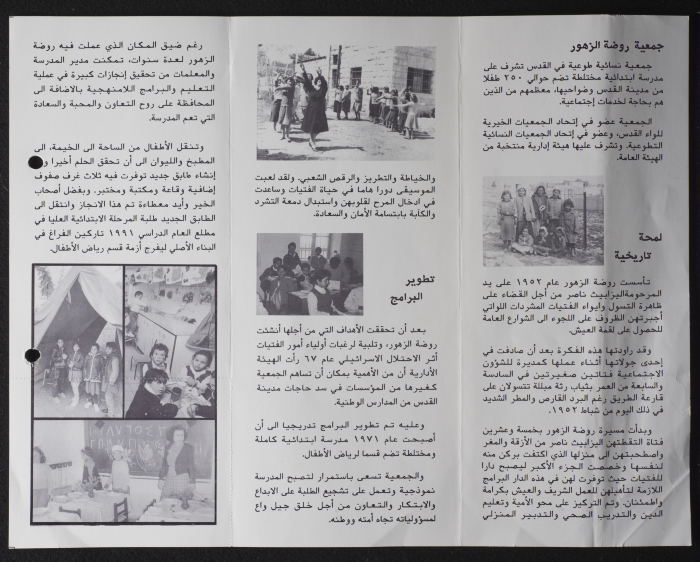 جمعية روضة الزهور
جمعية نسائية طوعية في القدس تشرف على
مدرسة ابتدائية مختلطة تضم حوالي ٢٥٠ طفلا
من مدينة القدس وضواحيها، معظمهم من الذين
هم بحاجة لخدمات إجتماعية.
الجمعية عضو في إتحاد الجمعيات الخيرية
للواء القدس، وعضو في إتحاد الجمعيات النسائية
التطوعية، وتشرف عليها هيئة إدارية منتخبة من
الهيئة العامة.
لمحة
تاريخية
تأسست روضة الزهور عام ١٩٥٢ على يد
المرحومة اليزابيث ناصر من أجل القضاء على
ظاهرة التسول وأيواء الفتيات المشردات اللواتي
أجبرتهن الظروف على اللجوء الى الشوارع العامة
للحصول على لقمة العيش.
وقد راودتها هذه الفكرة بعد أن صادفت في
إحدى جولاتها أثناء عملها كمديرة للشؤون
الاجتماعية فتاتين صغيرتين في السادسة
والسابعة من العمر بثياب رثة مبللة تتسولان على
قارعة الطريق رغم البرد القارص والمطر الشديد
في ذلك اليوم من شباط ١٩٥٢.
وبدأت مسيرة روضة الزهور بخمسة وعشرين
فتاة التقطتهن اليزابيث ناصر من الأزقة والمغر
واصطحبتهن الى منزلها الذي اكتفت بركن منه
لنفسها وخصصت الجزء الأكبر ليصبح دارا
للفتيات حيث توفرت لهن في هذه الدار البرامج
اللازمة لتأهيلهن للعمل الشريف والعيش بكرامة
واطمئنان. وتم التركيز على محو الأمية وتعليم
الدين والتدريب الصحي والتدبير المنزلي
والخياطة والتطريز والرقص الشعبي. ولقد لعبت
الموسيقى دورا هاما في حياة الفتيات وساعدت
في ادخال المرح لقلوبهن واستبدال دمعة التشرد
والكآبة بابتسامة الأمان والسعادة.
تطوير
البرامج
بعد أن تحققت الأهداف التي من أجلها أنشئت
روضة الزهور، وتلبية لرغبات أولياء أمور الفتيات
أثر الاحتلال الاسرائيلي عام ٦٧ رأت الهيئة
الأدارية أن من الأهمية بمكان أن تساهم الجمعية
كغيرها من المؤسسات في سد حاجات مدينة
القدس من المدارس الوطنية.
وعليه تم تطوير البرامج تدريجيا الى أن
أصبحت عام ١٩٧١ مدرسة ابتدائية كاملة
ومختلطة تضم قسما لرياض الأطفال.
والجمعية تسعى باستمرار لتصبح المدرسة
نموذجية وتعمل على تشجيع الطلبة على الابداع
والابتكار والتعاون من أجل خلق جيل واع
لمسؤولياته تجاه أمته ووطنه.
رغم ضيق المكان الذي عملت فيه روضة
الزهور لعدة سنوات، تمكنت مدير المدرسة
والمعلمات من تحقيق إنجازات كبيرة في عملية
التعليم والبرامج اللامنهجية بالاضافة الى
المحافظة على روح التعاون والمحبة والسعادة
التي تعم المدرسة.
وتنقل الأطفال من الساحة الى الخيمة، الى
المطبخ والليوان الى أن تحقق الحلم أخيرا
إنشاء طابق جديد توفرت فيه ثلاث غرف صفوف
إضافية وقاعة ومكتبة ومختبر. وبفضل أصحاب
الخير وأيد معطاءة تم هذا الانجاز وانتقل الى
الطابق الجديد طلبة المرحلة الابتدائية العليا في
مطلع العام الدراسي ١٩٩١ تاركين الفراغ في
البناء الأصلي ليفرج أزمة قسم رياض الأطفال.